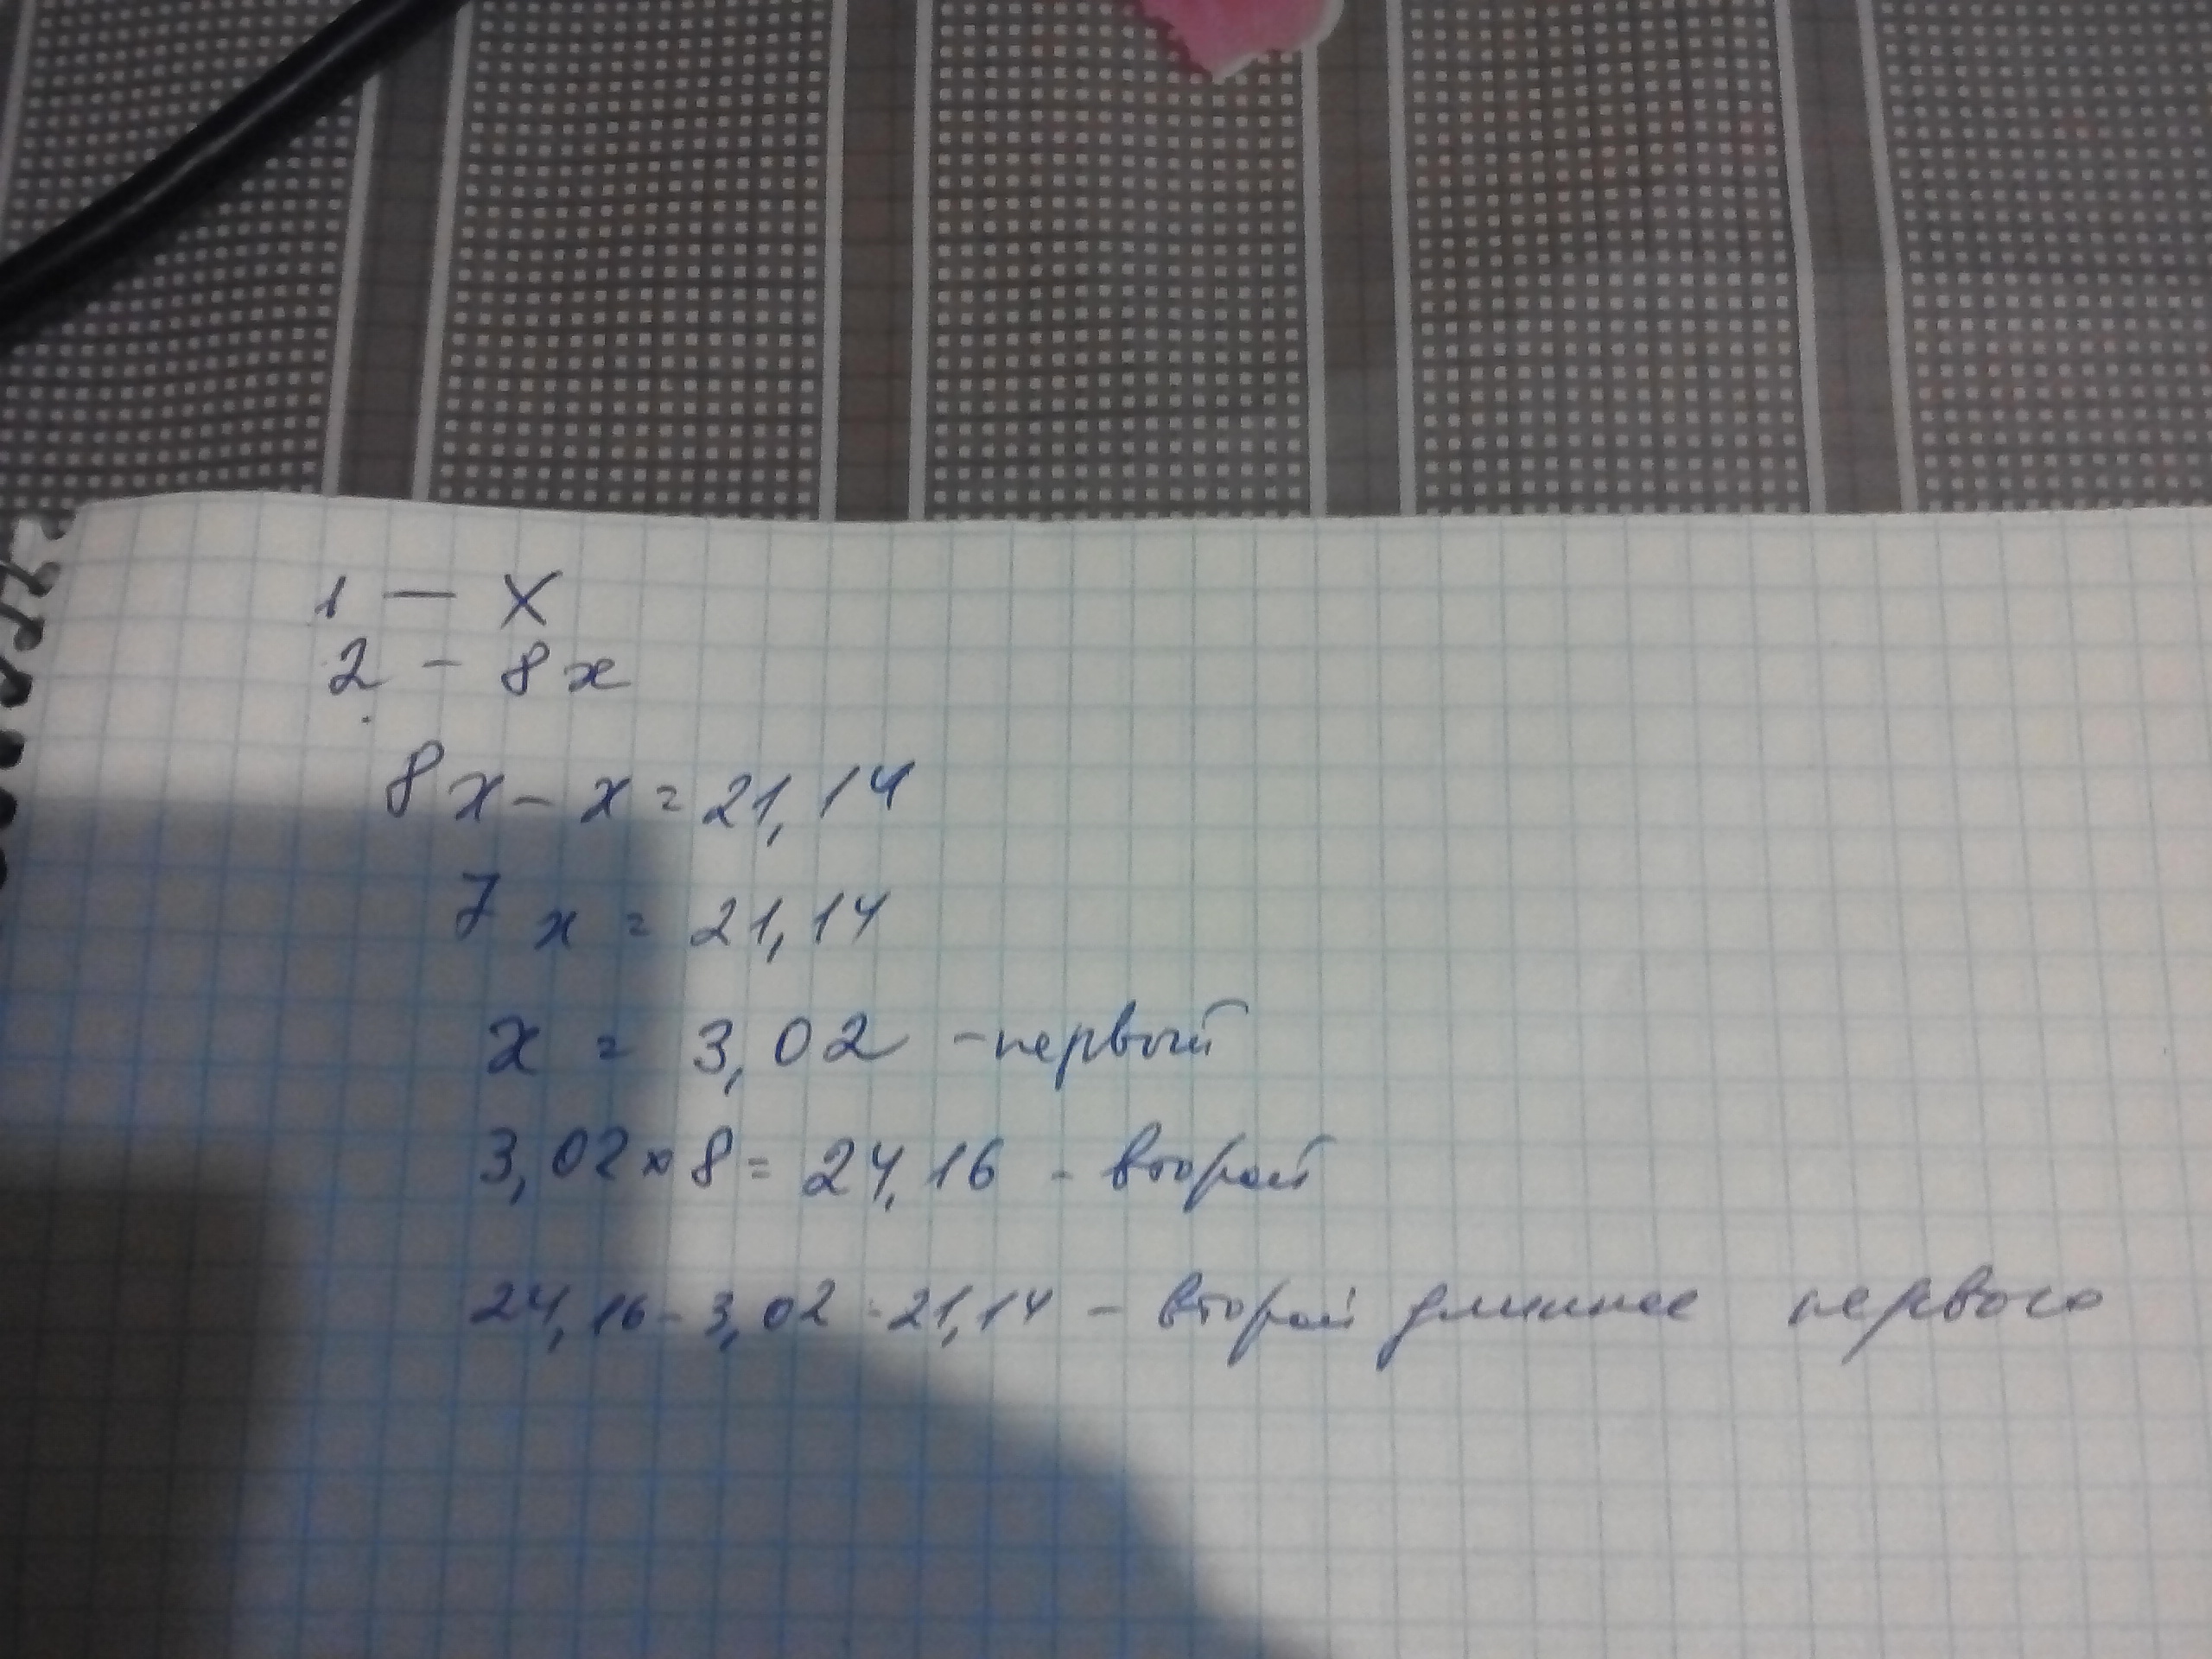 1 — x
2 - 8x
8x - x = 21,14
7x = 21,14
x = 3,02 - первый
3,02 x 8 = 24,16 - второй
24,16 - 3,02 = 21,14 - второй длиннее первого